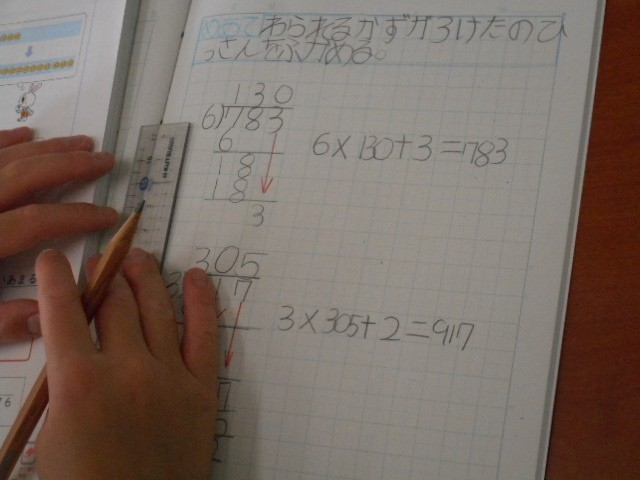 めあて わられるかずが3けたのひ
っさんをふかめる。
130
6)783
6
18
18
3
6×130+3=783
305
3 17
3×305+2=917
2
あまる